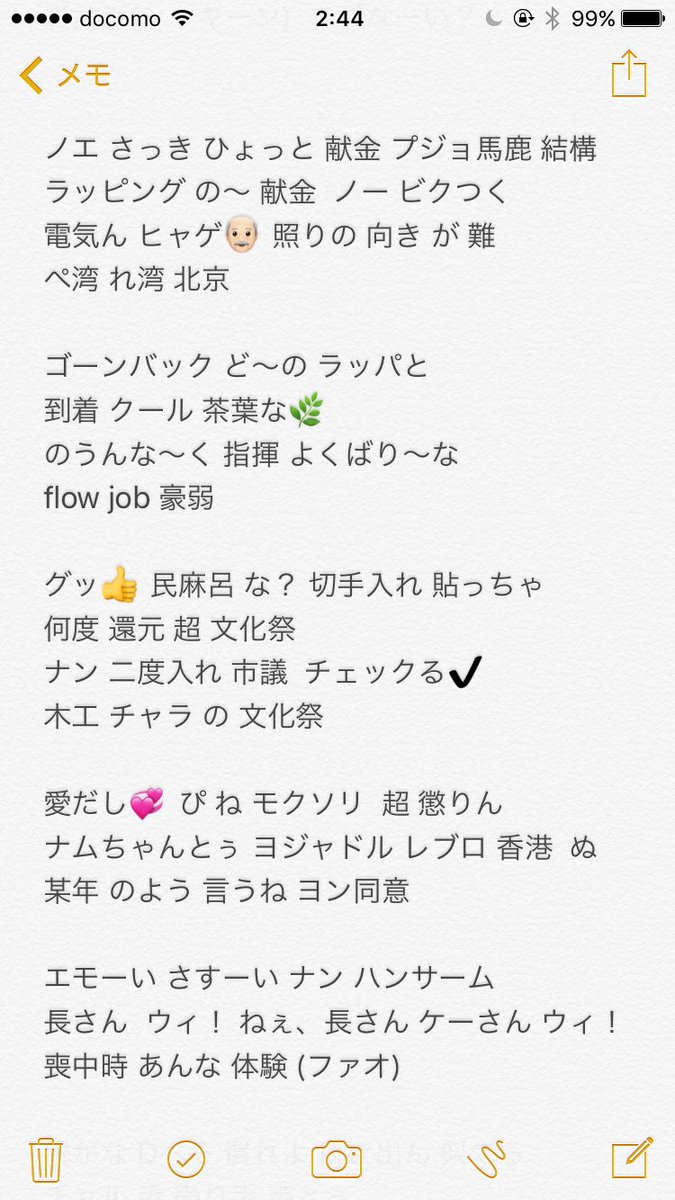 docomo 2:44 99%
メモ
ノエ さっき ひょっと 献金 プジョ馬鹿 結構
ラッピング の〜 献金 ノー ビクつく
電気ん ヒャゲ👴🏻 照りの 向き が 難
ペ湾 れ湾 北京
ゴーンバック ど〜の ラッパと
到着 クール 茶葉な🌿
のうんな〜く 指揮 よくばり〜な
flow job 豪弱
グッ👍 民麻呂 な？ 切手入れ 貼っちゃ
何度 還元 超 文化祭
ナン 二度入れ 市議 チェックる✔
木工 チャラ の 文化祭
愛だし💞 ぴ ね モクソリ 超 懲りん
ナムちゃんとぅ ヨジャドル レブロ 香港 ぬ
某年 のよう 言うね ヨン同意
エモーい さすーい ナン ハンサーム
長さん ウィ！ ねぇ、長さん ケーさん ウィ！
喪中時 あんな 体験 (ファオ)